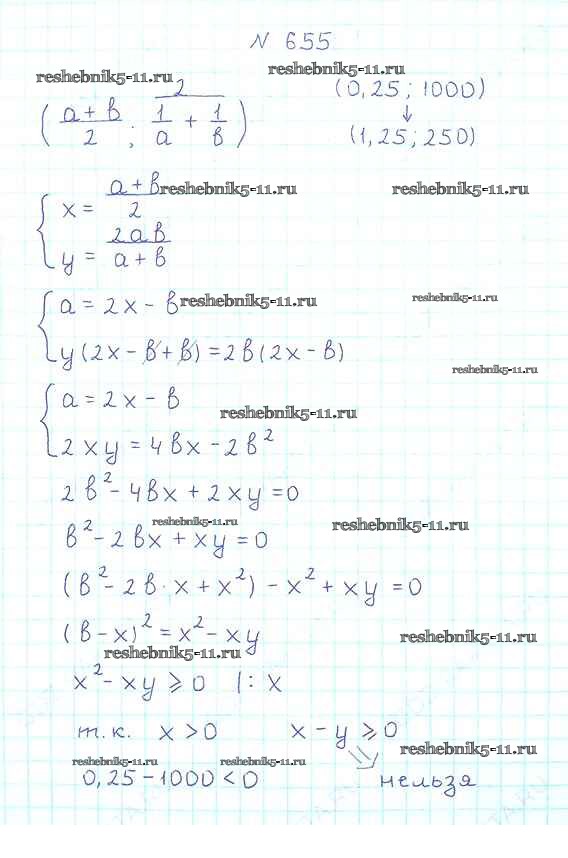 N 655
reshebnik5-11.ru reshebnik5-11.ru
( a + в / 2 ; 2 / 1/a + 1/в ) (0,25 ; 1000)
↓
(1,25 ; 250)
{ x = a + в / 2 reshebnik5-11.ru reshebnik5-11.ru
y = 2 a в / a + в
{ a = 2 x - в reshebnik5-11.ru reshebnik5-11.ru
y (2 x - в + в) = 2 в (2 x - в)
reshebnik5-11.ru
{ a = 2 x - в
reshebnik5-11.ru
2 x y = 4 в x - 2 в²
2 в² - 4 в x + 2 x y = 0
reshebnik5-11.ru reshebnik5-11.ru
в² - 2 в x + x y = 0
(в² - 2 в · x + x²) - x² + x y = 0
(в - x)² = x² - x y
reshebnik5-11.ru reshebnik5-11.ru
x² - x y ⩾ 0 | : x
т.к. x > 0 x - y ⩾ 0
reshebnik5-11.ru reshebnik5-11.ru reshebnik5-11.ru
0,25 - 1000 < 0 нельзя